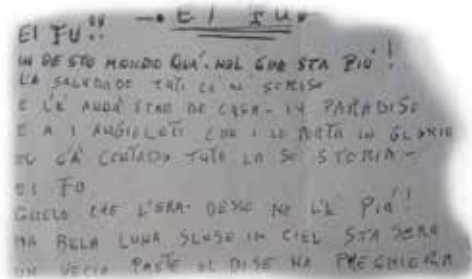 EI FU!! → EI FU
IN QESTO MONDO QUÁ. NOL GHE STA PIÚ!
LA SALUDADE TUTI CO 'N SORISO
E L'È ANDÁ STAR DE CASA - IN PARADISO
E A I ANGIOLETI CHE I LO PORTA IN GLORIA
EL GÁ CONTADO TUTA LA SO STORIA -
EI FU
QUELO CHE L'ERA. DESSO NO L'È PIÚ!
NA BELA LUNA SLUSE IN CIEL STA SERA
UN VECIO PRETE EL DISE NA PREGHIERA